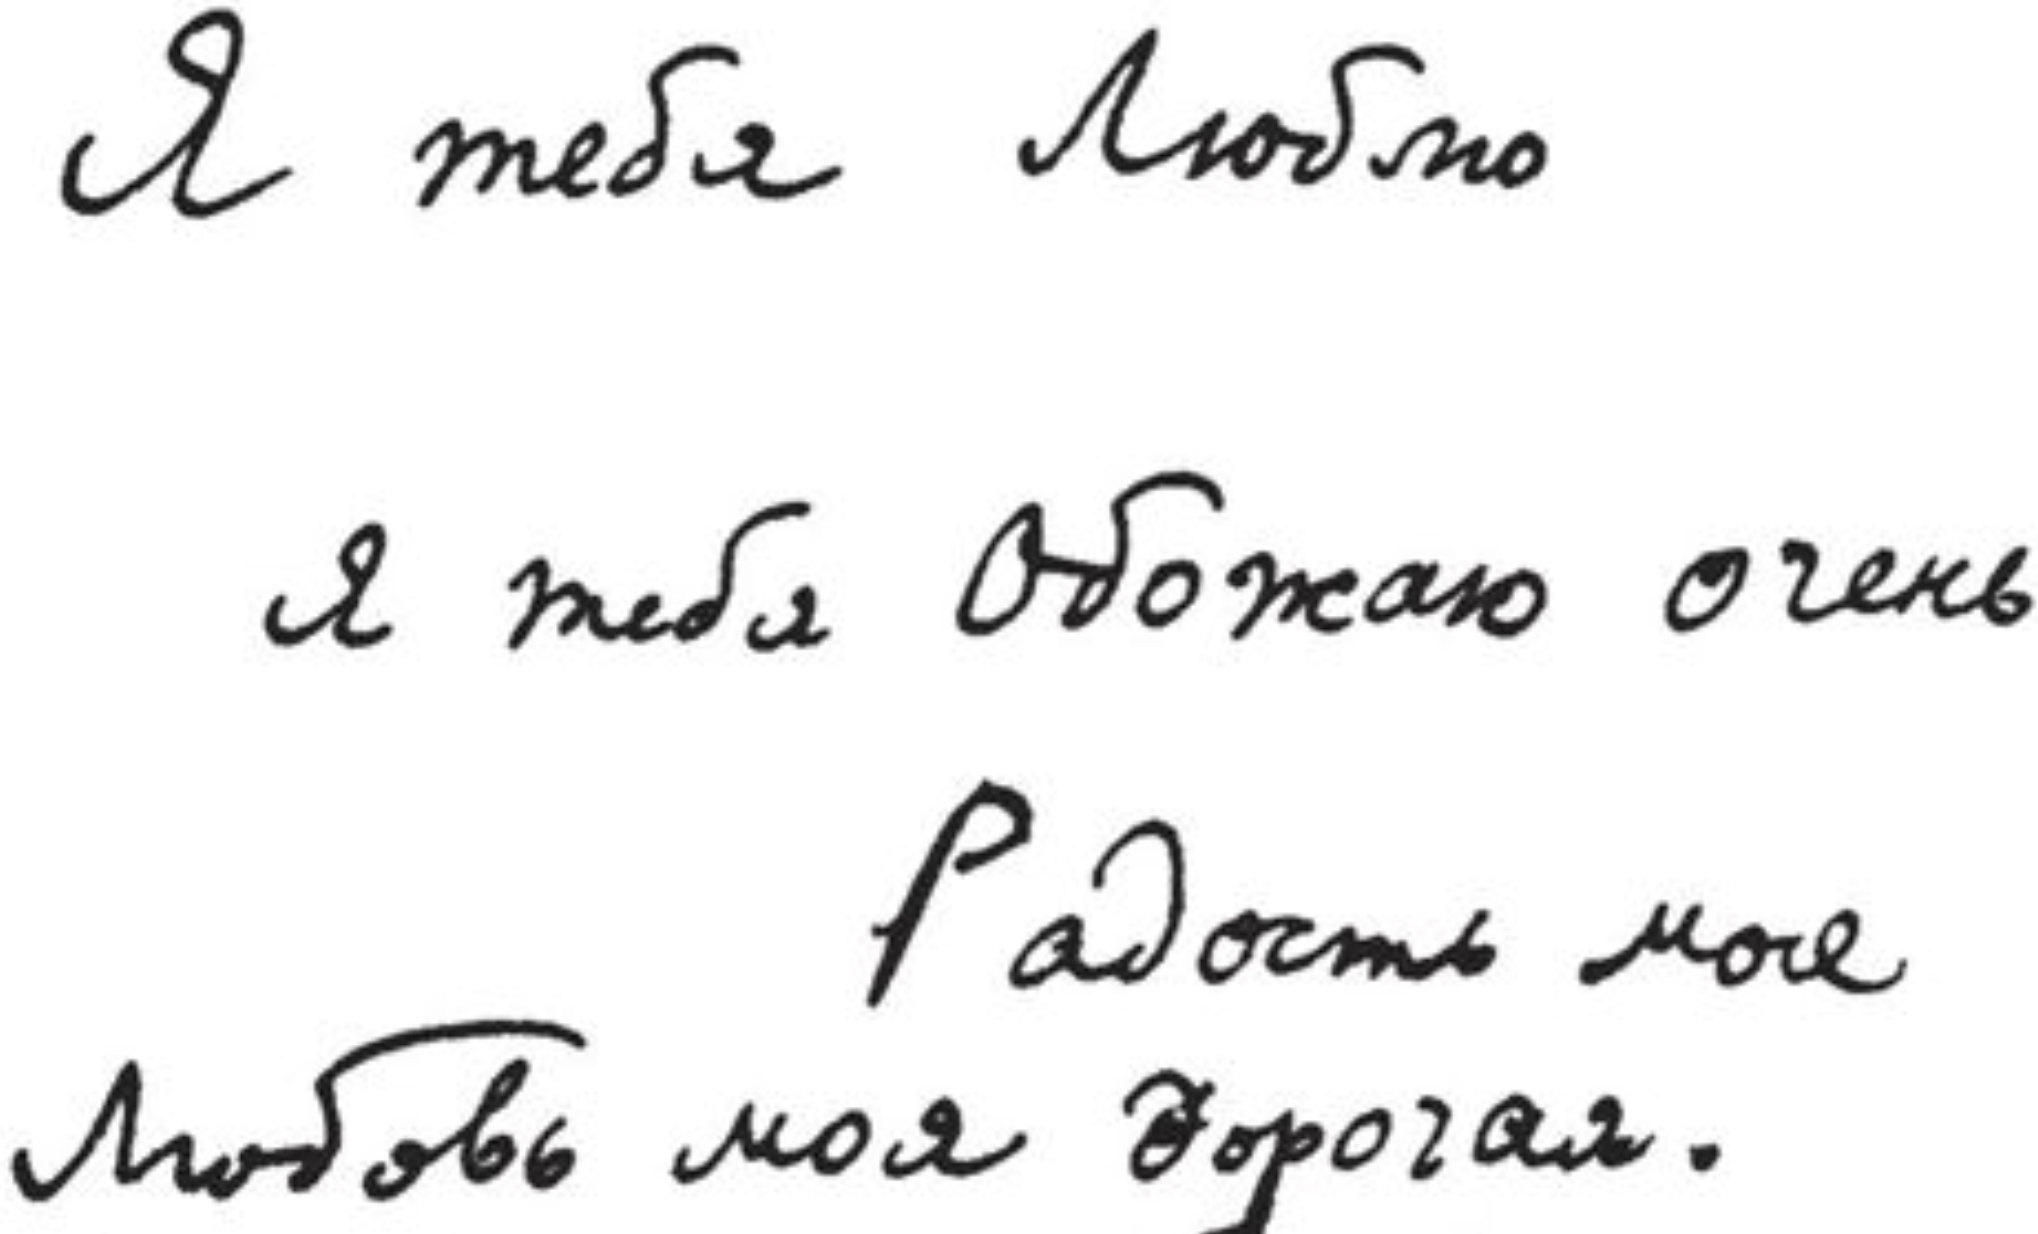 Я тебя Люблю
Я тебя Обожаю очень
Радость мое
Любовь моя дорогая.